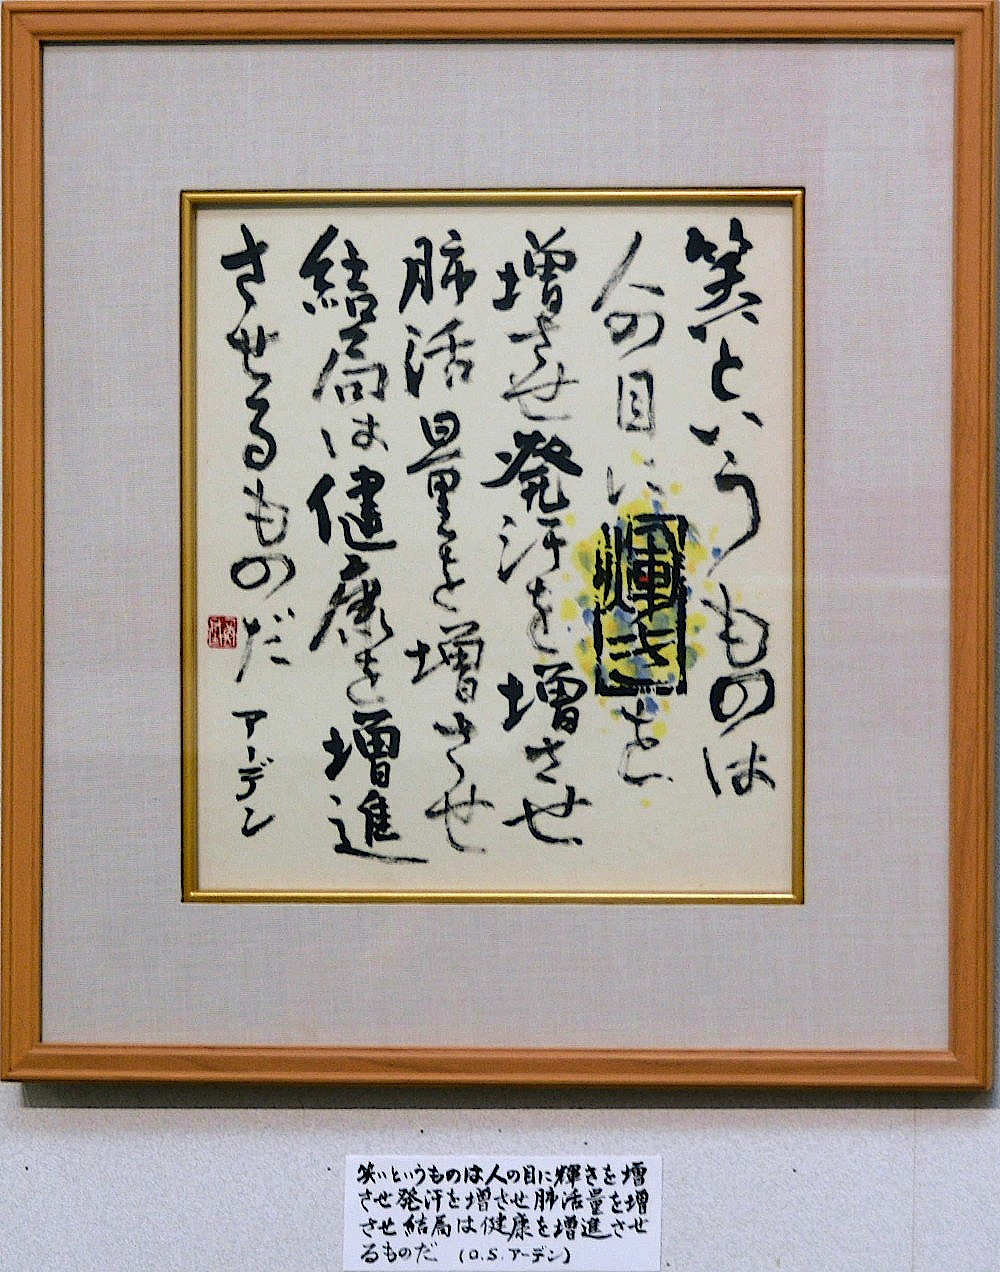 笑いというものは
人の目に輝きを
増させ発汗を増させ
肺活量を増させ
結局は健康を増進
させるものだ
アーデン
笑いというものは人の目に輝きを増
させ発汗を増させ肺活量を増
させ結局は健康を増進させ
るものだ (O.S.アーデン)